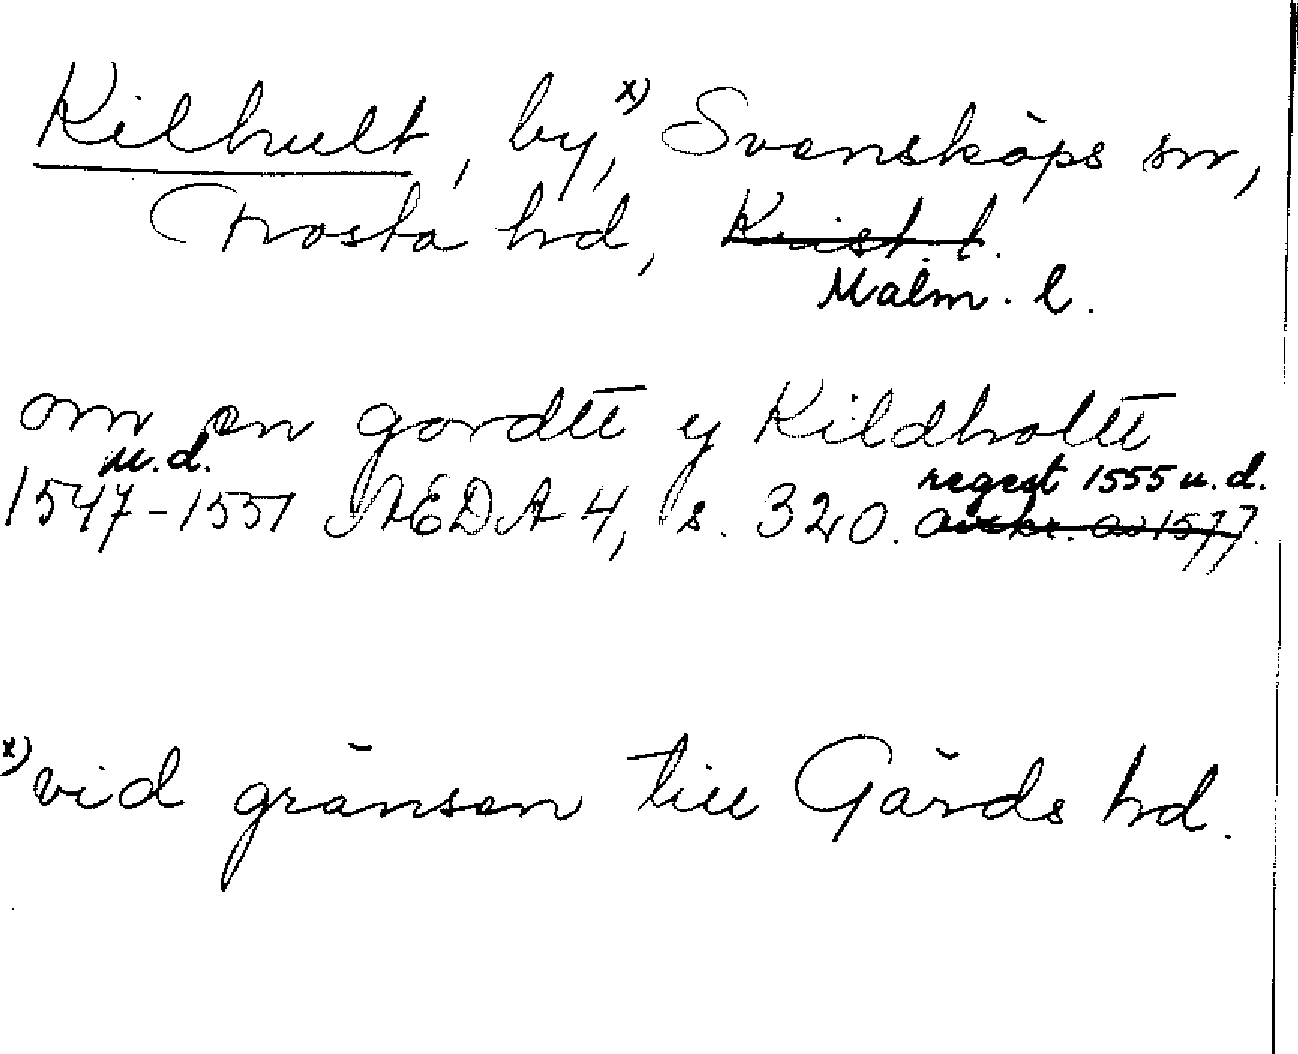 Kilhult, by,x) Svensköps sn,
Frosta hd, Krist. l.
Malm. l.
om en gordtt y Kildholtt
u.d. regest 1555 u.d.
1547-1551 NÆDA 4, s. 320. avskr. av 1577.
x) vid gränsen till Gärds hd.